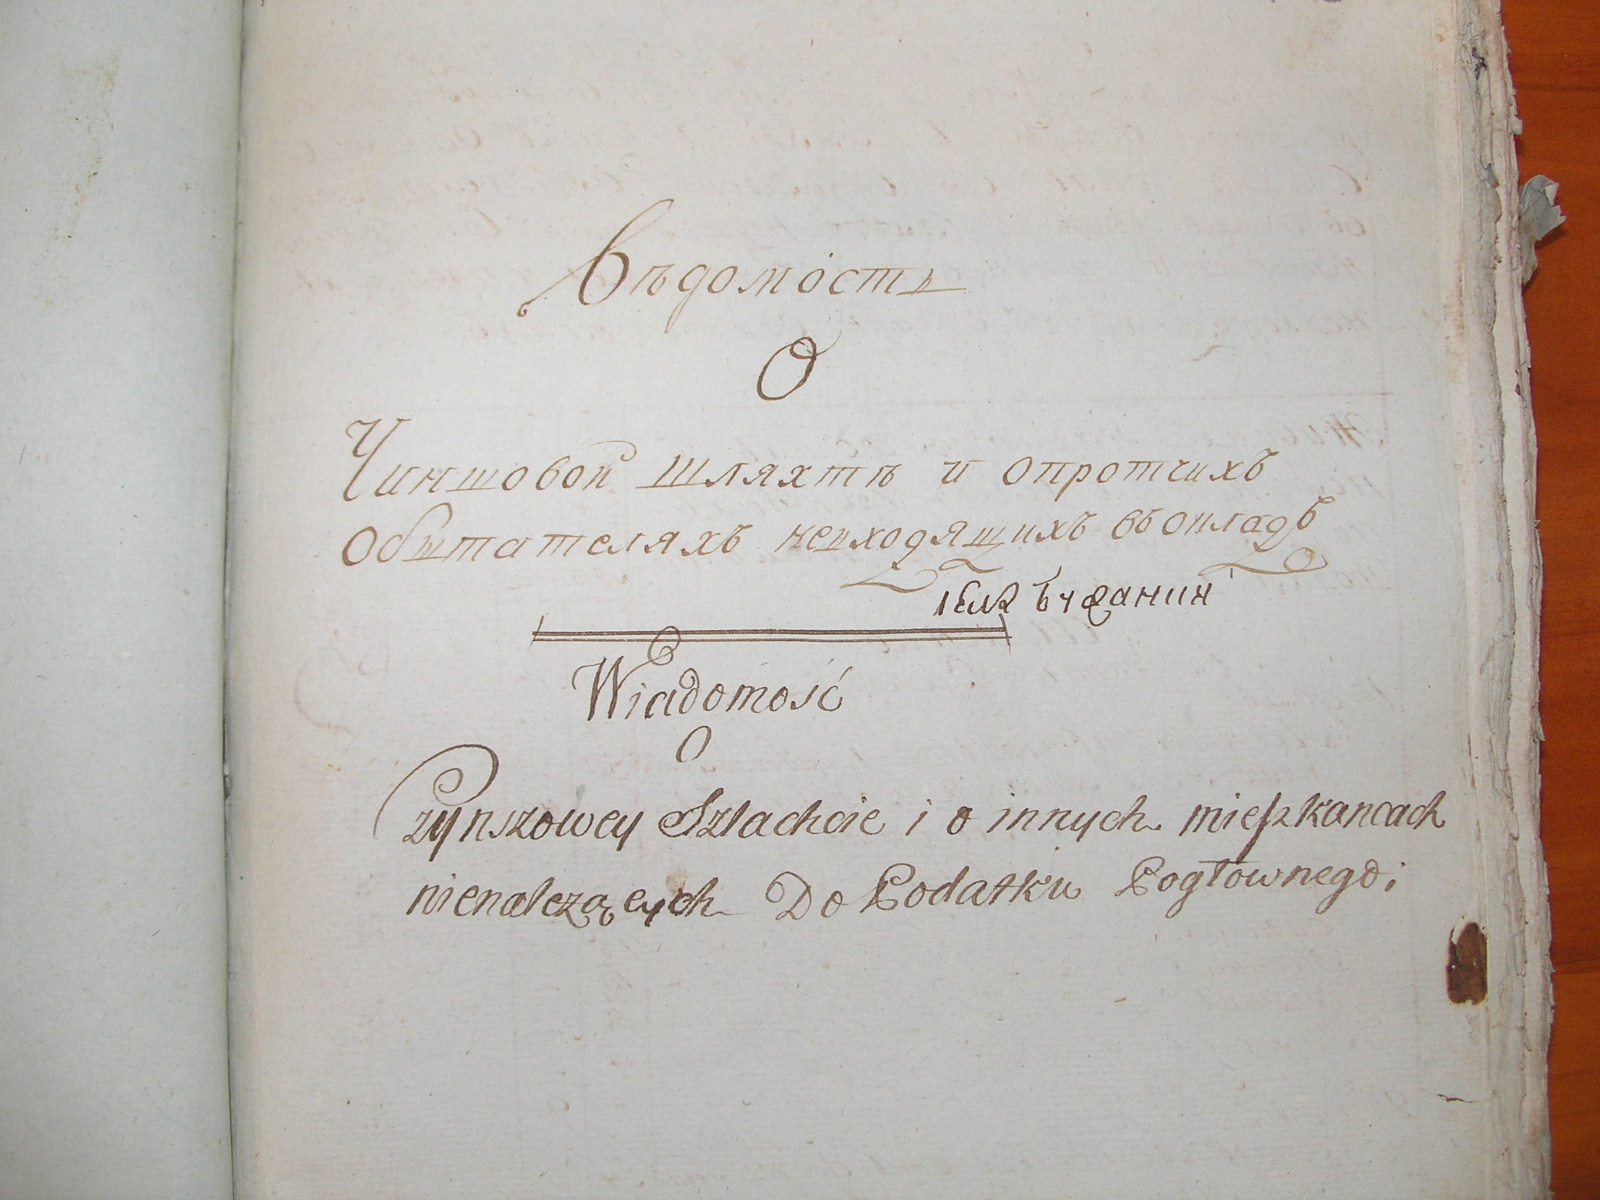 Вѣдомость
О
Чиншовой шляхтѣ и опротчихъ
Обытателяхъ невходящихъ въокладъ
Wiadomość
O
Czynszowey Szlachcie i o innych mieszkancach
nienależących Do Podatku Pogłownego;